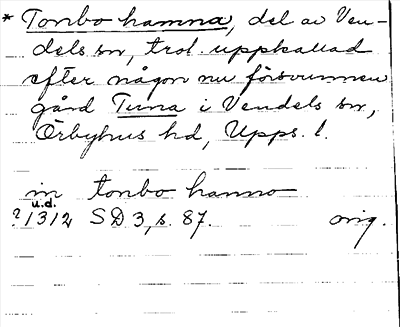 * Tonbo hamna, del av Ven-
dels sn, trol. uppkallad
efter någon nu försvunnen
gård Tuna i Vendels sn,
Örbyhus hd, Upps. l.
in tonbo hamno
u.d.
?1312 SD 3, s. 87. orig.